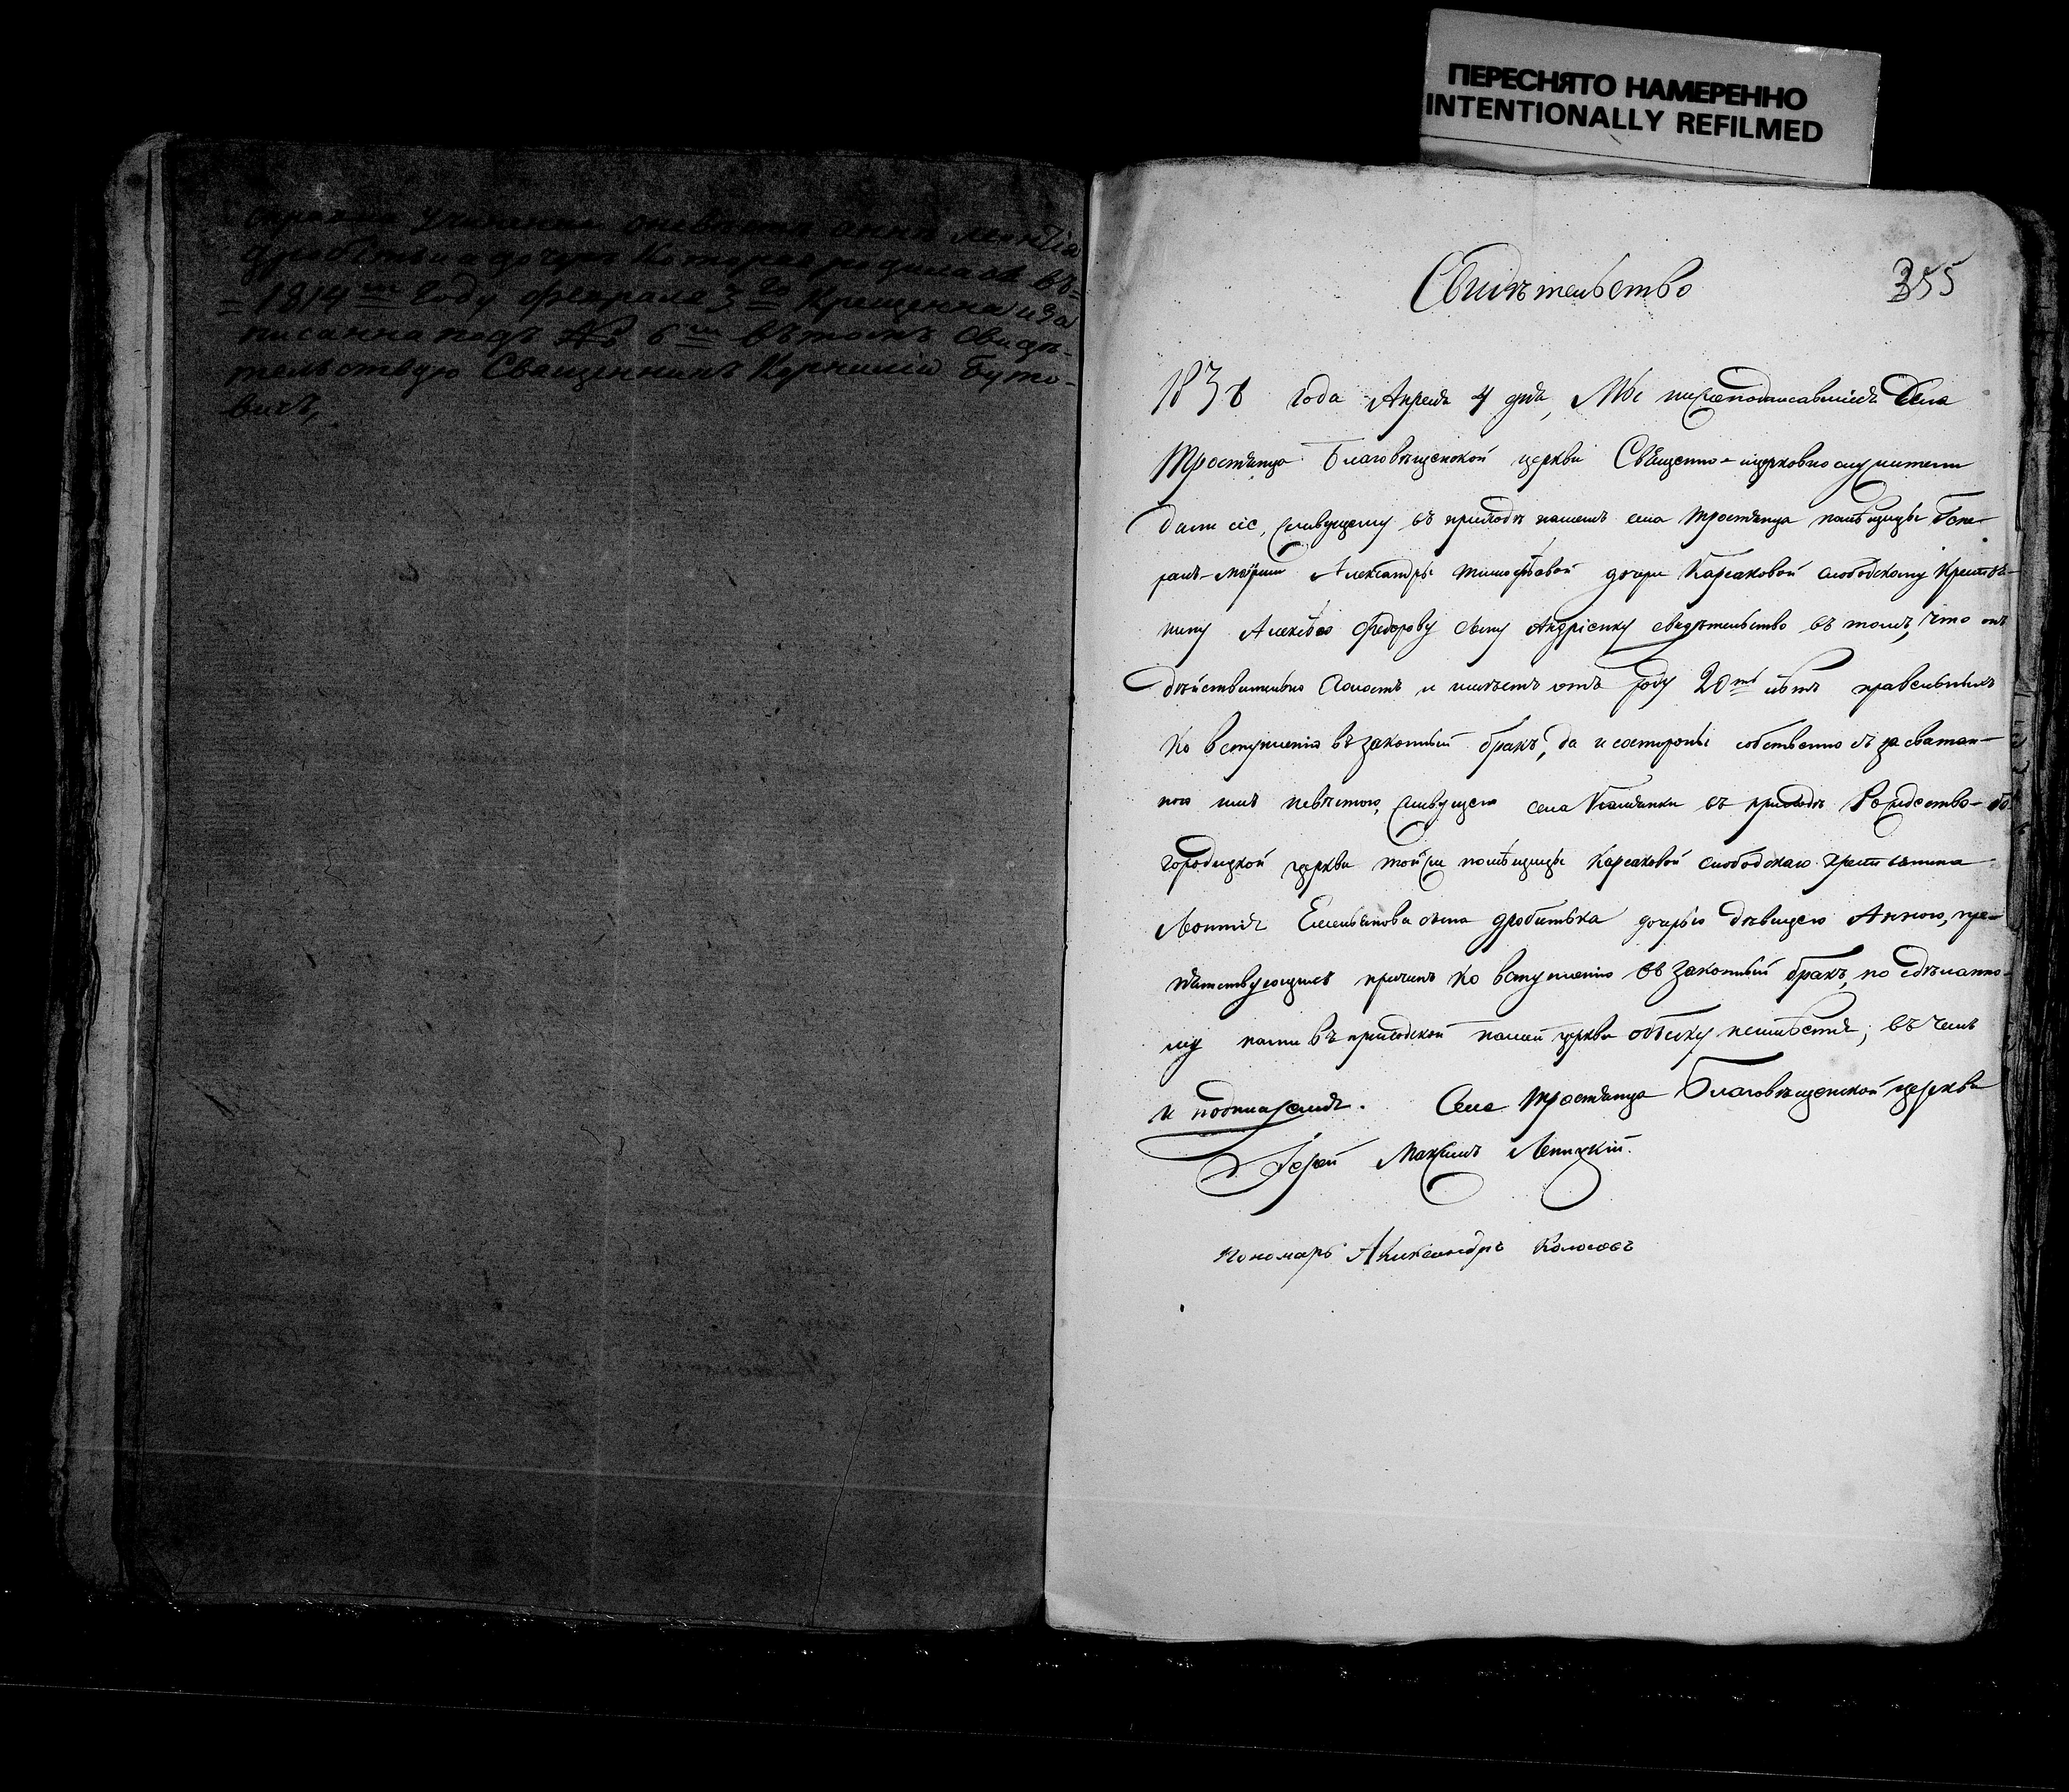 ПЕРЕСНЯТО НАМЕРЕННО
INTENTIONALLY REFILMED
дробитька дочери Которая родилась въ
1814го Году февраля 3го Крещенна и за
писанна подъ № 6мъ въ томъ Свидѣ-
тельствую Священникъ Бутo-
вичъ,
355
Свидѣтельство
1838 года Апреля 4 дня, Мы нижеподписавшіеся Села
Тростянца Благовѣщенской церкви Священно-ицерковнослужители
дали сіе, жывущему въ приходѣ нашемъ села Тростянца помѣщицы Гене-
ралъ-Маіорши Александры Тимофѣевой дочери Карсаковой слободскому Крестья-
нину Алексѣю Федорову сыну Андріенку свидѣтельство въ томъ, что онъ
дѣйствительно Холостъ и имѣетъ отъ роду 20ть лѣтъ
Ко вступленію въ законный бракъ, да и состороны собственно съ засватан-
ною имъ невѣстою, жывущею села въ приходѣ Рождество-Бо
городицкой церкви тойже помѣщицы Карсаковой слободскаго крестьянина
Леонтія Емельянова сына дробитька дочерью дѣвицею Анною, пре-
пятствующихъ причинъ Ко вступленію въ законный бракъ, по сдѣланно-
му нами въ приходской нашей церкви обыску неимѣется; въ чемъ
и подписуемся. Села Тростянца Благовѣщенской церкви
Іерей Максимъ
Пономарь Александръ Колосовъ